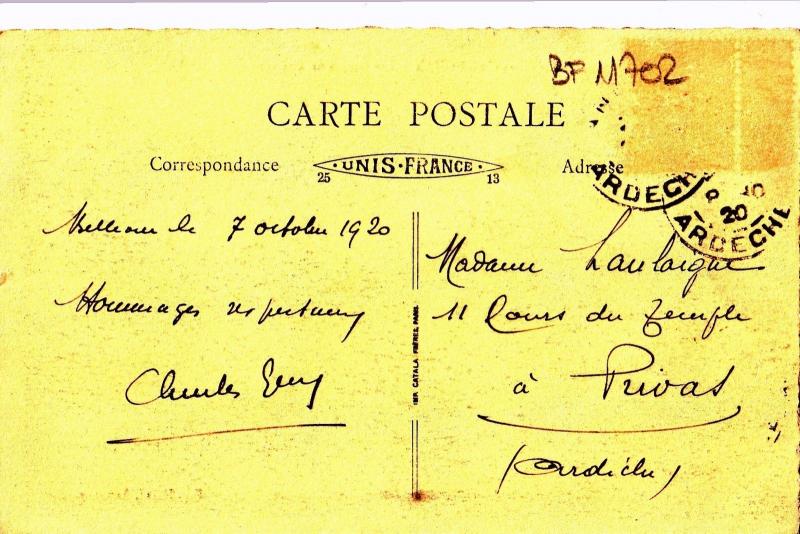 BF M702
CARTE POSTALE
Correspondance
UNIS-FRANCE
25 13
Adresse
ARDECHE
20
ARDECHE
le 7 octobre 1920
Hommages respectueux
Charles
IMP. CATALA FRÈRES, PARIS
Madame
11 Cours du Temple
à Privas
(Ardèche)